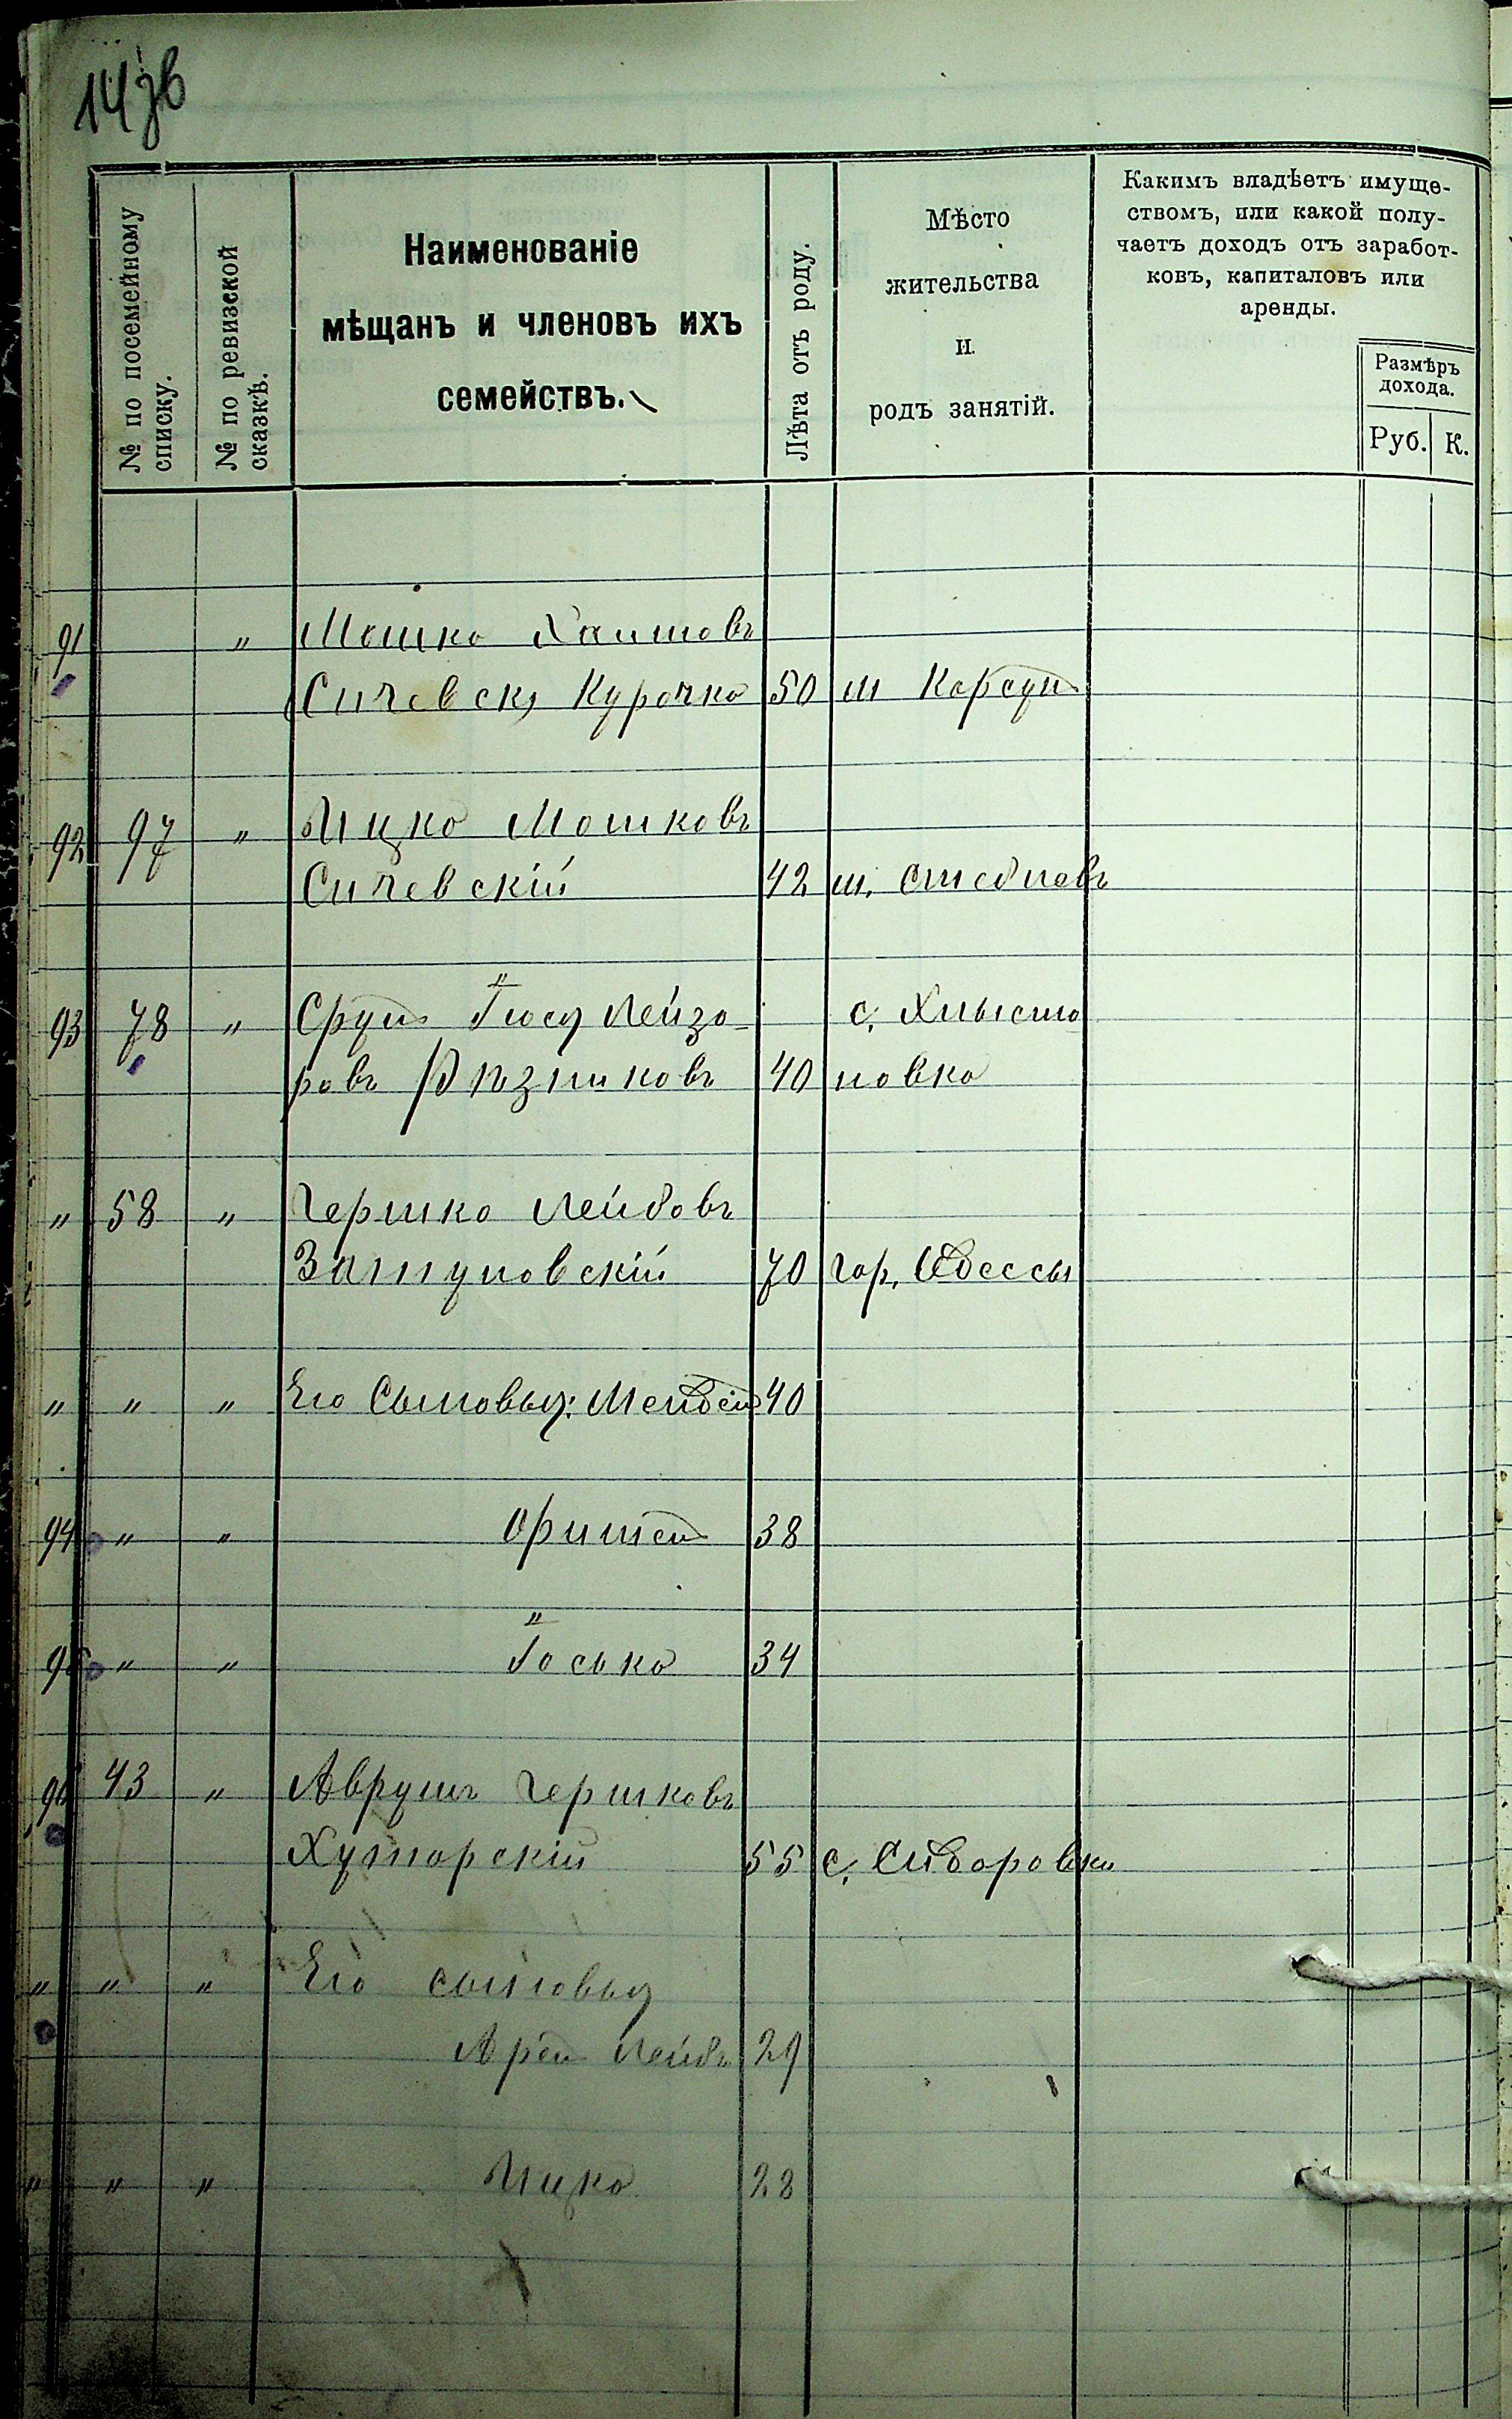 14 зв
№ по посемейному списку.
№ по ревизской сказкѣ.
Наименованіе
мѣщанъ и членовъ ихъ
семействъ.
Лѣта отъ роду.
Мѣсто
жительства
и
родъ занятій.
Какимъ владѣетъ имуще-
ствомъ, или какой полу-
чаетъ доходъ отъ заработ-
ковъ, капиталовъ или
аренды.
Размѣръ
дохода.
Руб. К.
91 " Мошко Хаимовъ
Сичевск, Курочка 50 м Корсунь
92 97 " Ицко Мошковъ
Сичевскій 42 м. Стеблевъ
93 78 " Сруль Іось Лейзо- с. Хлысту
ровъ Рѣзниковъ 40 новка
" 58 " Гершко Лейбовъ
70 гор. Одессы
" " " Его Сыновья: Мендель 40
94 " " 38
95 " " Іосько 34
96 43 " Аврумъ Гершковъ
Хуторскій 55 с. Сидоровки
" " " Его сыновья
Арон Лейбъ 29
" " " Ицко 28